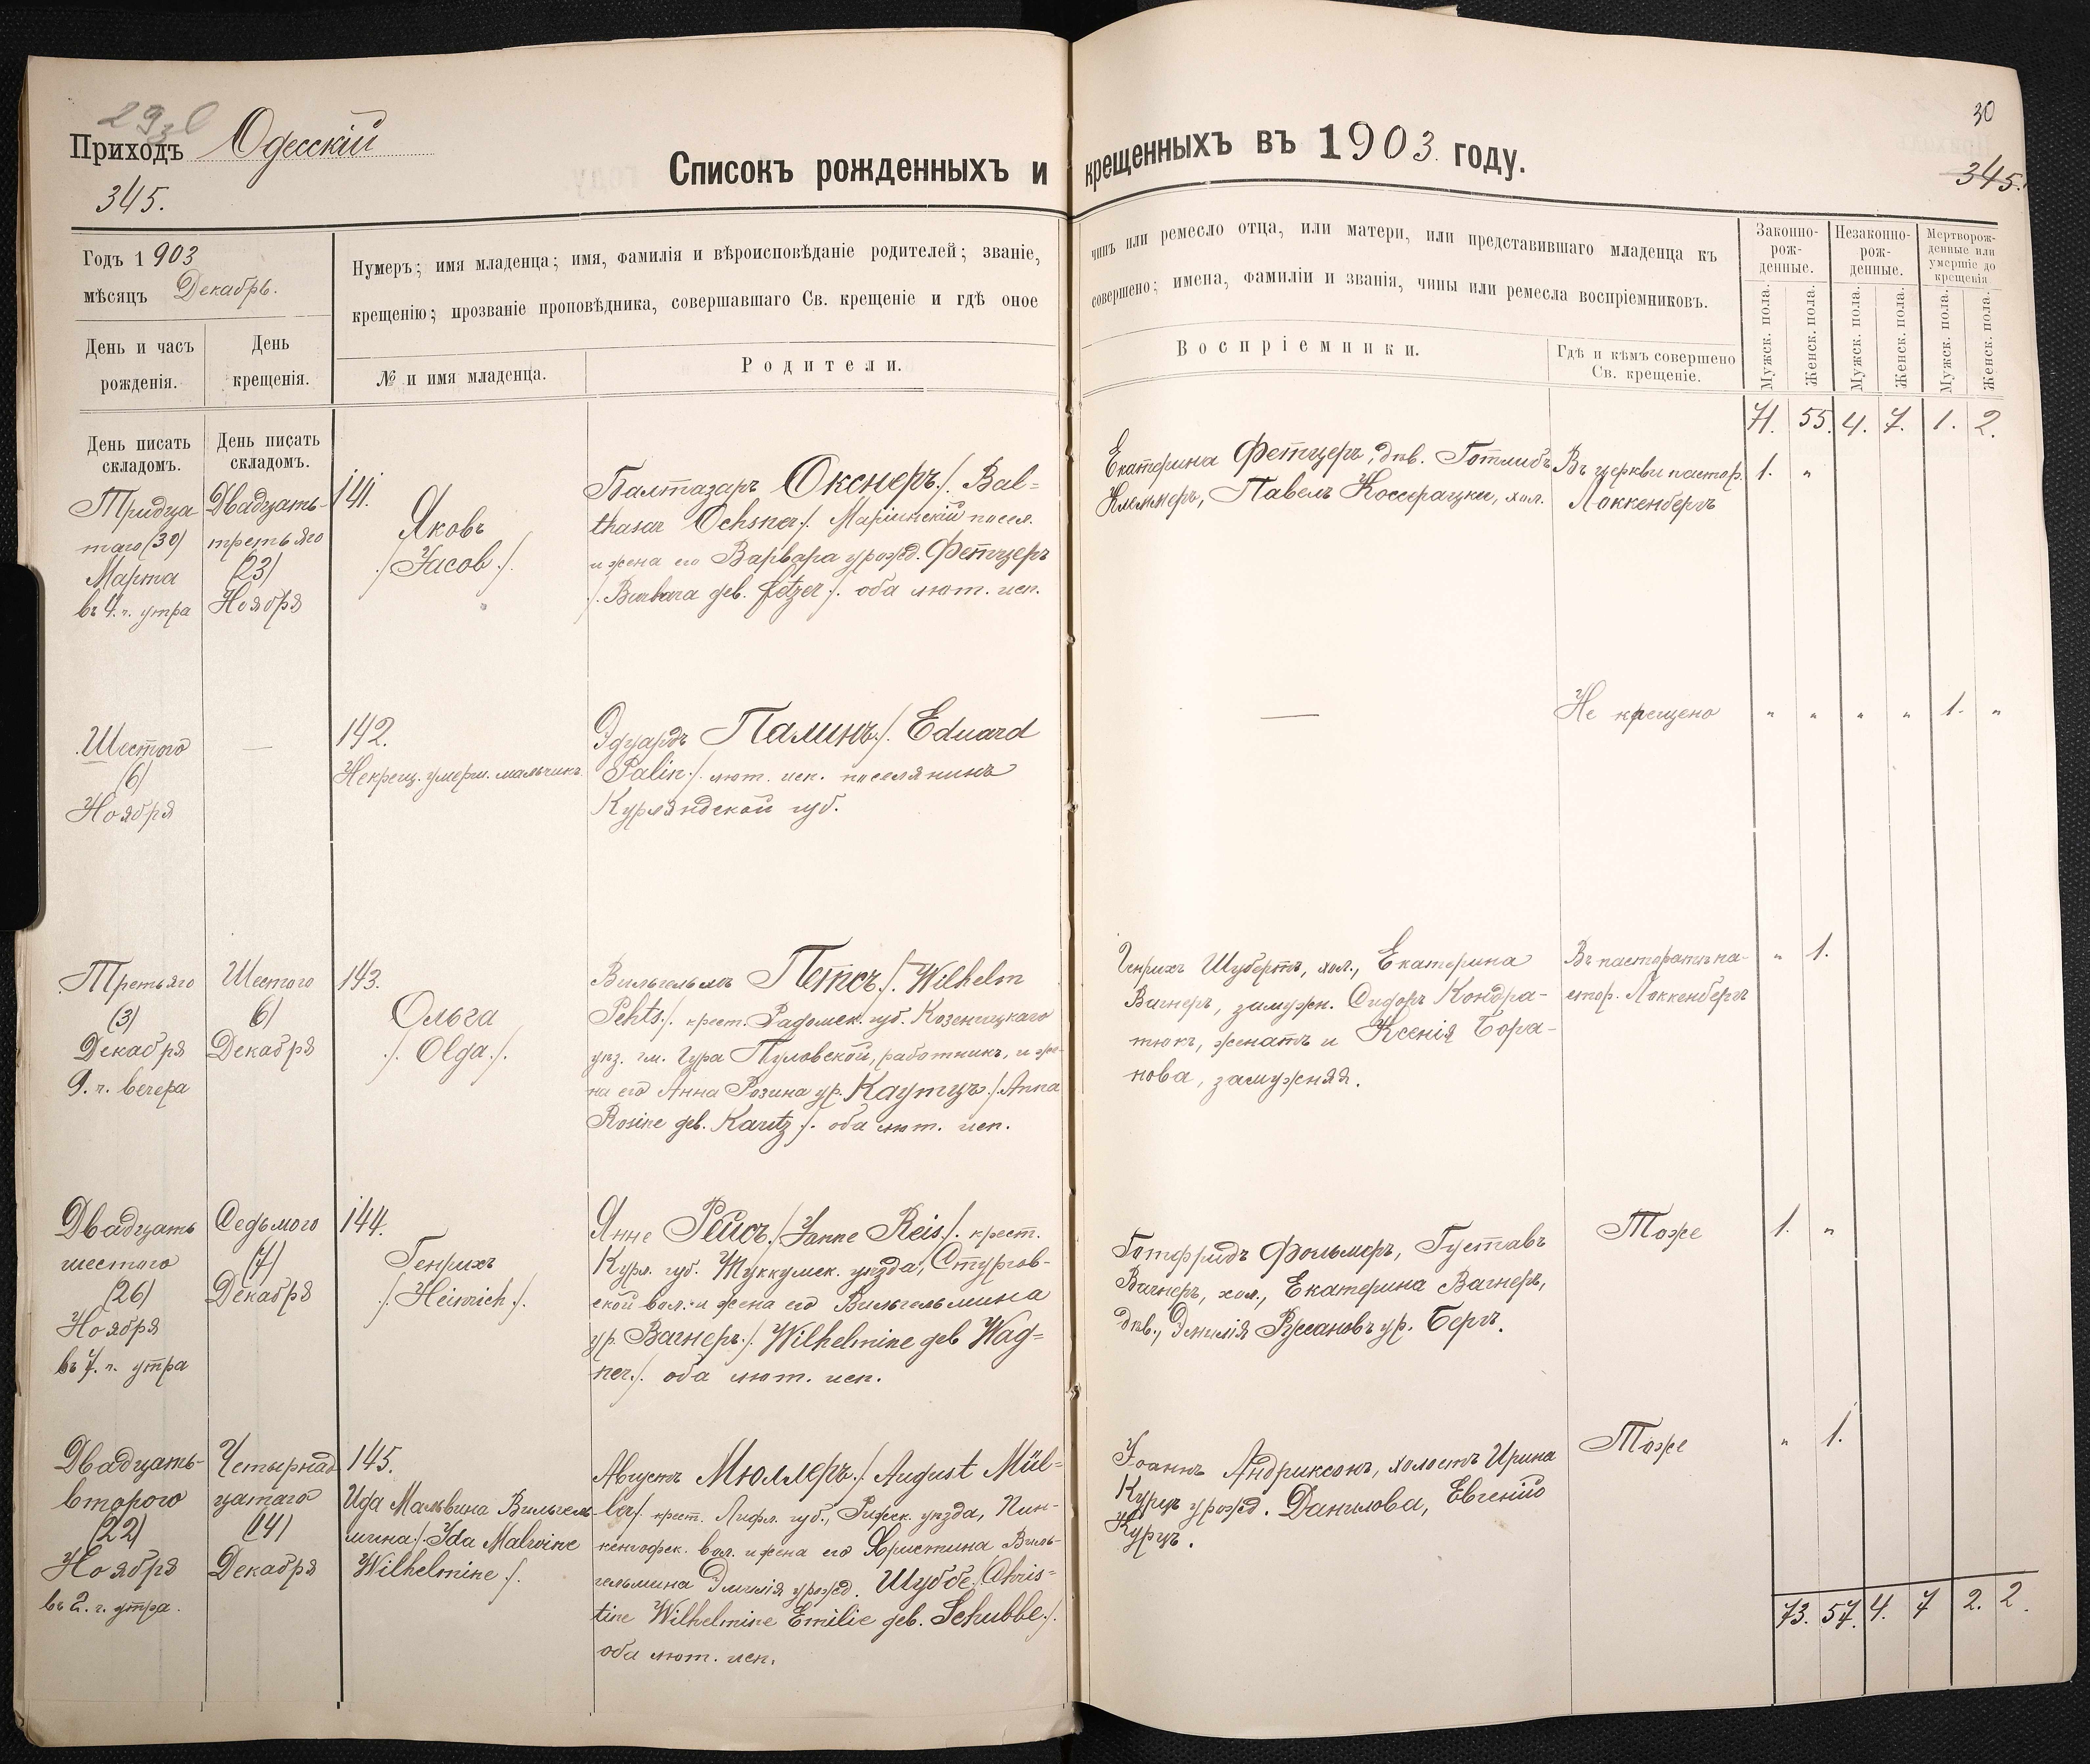 29 30
Приходъ Одесскій
345.
Списокъ рожденныхъ и крещенныхъ въ 1903. году.
30
345.
Годъ 1903
мѣсяцъ Декабрь.
День и часъ
рожденія.
День
крещенія.
Нумеръ; имя младенца; имя, фамилія и вѣроисповѣданіе родителей; званіе,
крещенію; прозваніе проповѣдника, совершавшаго Св. крещеніе и гдѣ оное
№ и имя младенца.
Родители.
чинъ или ремесло отца, или матери, или представившаго младенца къ
совершено; имена, фамиліи и званія, чины или ремесла воспріемниковъ.
Воспріемники.
Гдѣ и кѣмъ совершено
Св. крещеніе.
Законно-
рож-
денные.
Незаконно-
рож-
денные.
Мертворож-
денные или
умершіе до
крещенія
Мужск. пола.
Женск. пола.
Мужск. пола.
Женск. пола.
Мужск. пола.
Женск. пола.
71. 55. 4. 7. 1. 2.
День писать
складомъ.
День писать
складомъ.
Тридца
таго (30)
Марта
въ 4. ч. утра
Двадцать-
третьяго
(23)
Ноября
141.
Яковъ
/Jacob/.
Балтазаръ Окснеръ/. Bal=
thasar Ochsner/. Маріинскій посел.
и жена его Варвара урожд. Фетцеръ
/. Barbara geb. Fetzer/. оба лют. исп.
Екатерина Фетцеръ, дѣв. Готлибъ
Клеммеръ, Павелъ Коссерацки, хол.
Въ церкви пастор.
Локкенбергъ
1. "
Шестого
(6)
Ноября
—
142.
Некрещ. умерш. мальчикъ
Эдуардъ Палинъ/. Eduard
Palin/. лют. исп. поселянинъ
Курляндской губ.
—
Не крещено
" " " " 1. "
Третьяго
(3)
Декабря
9. ч. вечера
Шестого
(6)
Декабря
143.
Ольга
/. Olga./.
Вильгельмъ Петсъ/. Wilhelm
Pehts/. крест. Радомск. губ. Козеницкаго
уѣз. гм. Гура Пуловской, работникъ, и же-
на его Анна Розина ур. Каутцъ/. Anna
Rosine geb. Kautz/. оба лют. исп.
Генрихъ Шубертъ, хол., Екатерина
Вагнеръ, замужн. Сидоръ Кондра-
тюкъ, женатъ и Ксенія Бора-
нова, замужняя.
Въ пасторатѣ па-
стор. Локкенбергъ
" 1.
Двадцать
шестого
(26)
Ноября
въ 7. ч. утра
Седьмого
(7)
Декабря
144.
Генрихъ
/. Heinrich/.
Янне Рейсъ./Janne Reis/. крест.
Курл. губ. Туккумск. уѣзда, Стургов-
ской вол. и жена его Вильгельмина
ур. Вагнеръ./. Wilhelmine geb Wag=
ner/. оба лют. исп.
Готфридъ Фольмеръ, Густавъ
Вагнеръ, хол., Екатерина Вагнеръ,
дѣв., Эмилія Руссановъ ур. Бергъ.
Тоже
1. "
Двадцать-
второго
(22)
Ноября
въ 2. ч. утра.
Четырнад
цатаго
(14)
Декабря
145.
Ида Мальвина Вильгель
мина/. Ida Malwine
Wilhelmine/.
Августъ Мюллеръ./. August Mül=
ler/. крест. Лифл. губ., Рижск. уѣзда, Пин-
кенгофск. вол. и жена его Христина Виль-
гельмина Эмилія урожд. Шуббе/. Chris=
tine Wilhelmine Emilie geb. Schubbe/.
оба лют. исп.
Іоаннъ Андриксонъ, холостъ Ирина
Курцъ урожд. Данилова, Евгеній
Курцъ.
Тоже
" 1.
73. 57. 4. 7 2. 2.